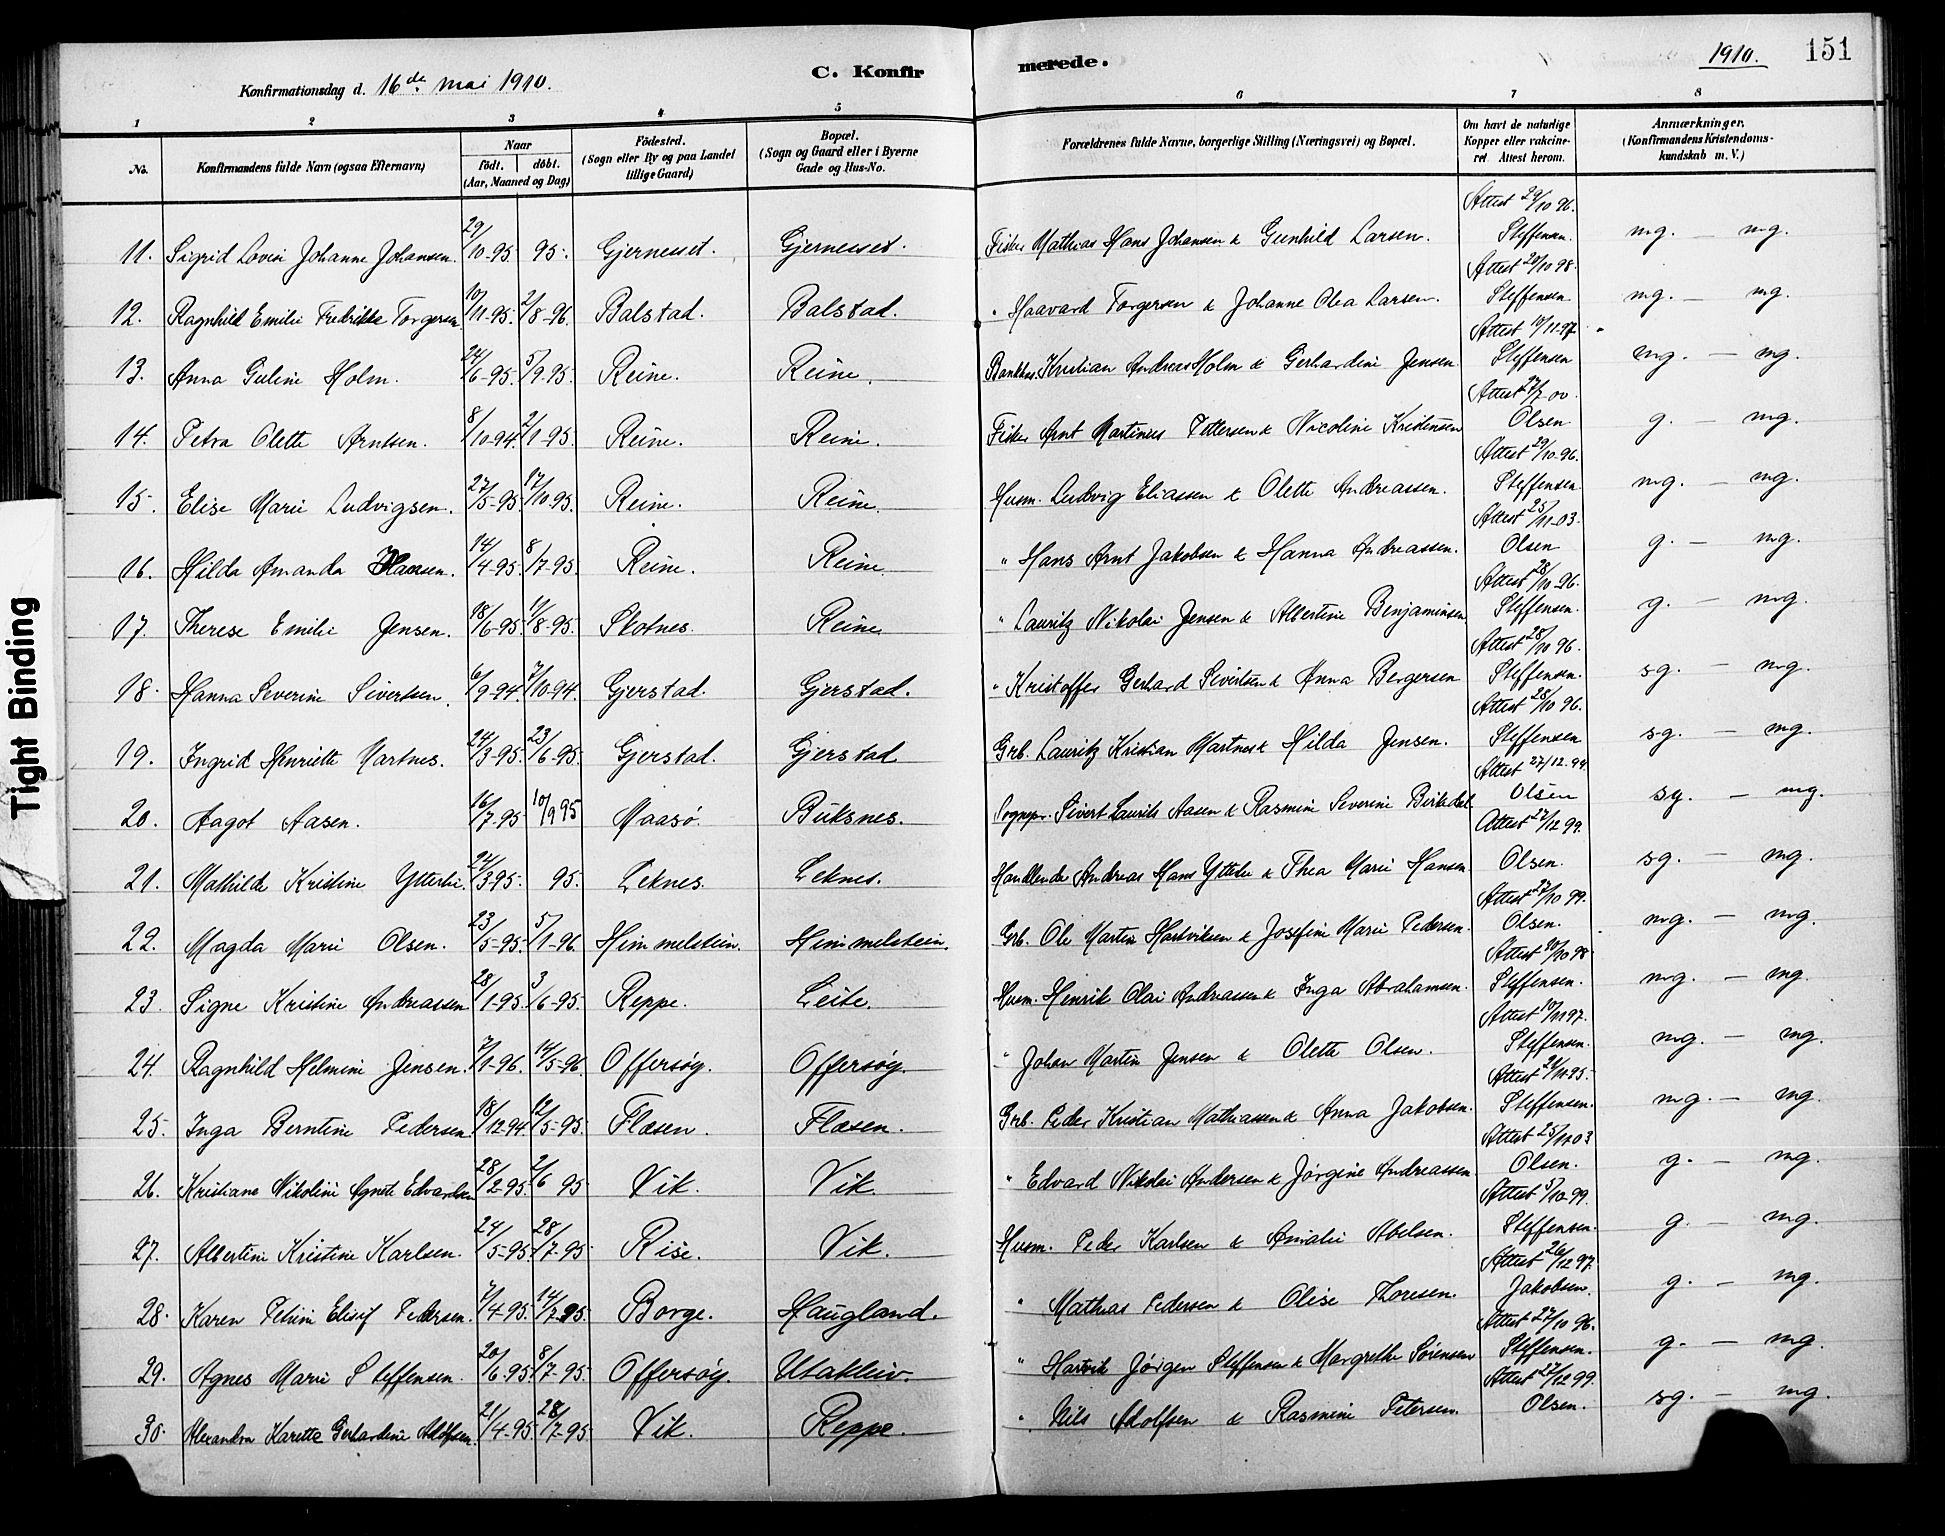 Tight Binding
C. Konfirmerede.
1910. 151
Konfirmationsdag d. 16de mai 1910.
1 2 3 4 5 6 7 8
No. Konfirmandens fulde Navn (ogsaa Efternavn) Naar födt. döbt. (Aar, Maaned og Dag) Födested. (Sogn eller By og paa Landet tillige Gaard) Bopæl. (Sogn og Gaard eller i Byerne Gade og Hus-No. Forældrenes fulde Navne, borgerlige Stilling (Næringsvei) og Bopæl. Om havt de naturlige Kopper eller vakcineret Attest herom. Anmærkninger. (Konfirmandens Kristendomskundskab m. V.)
11. Sigrid Lovise Johanne Johansen. 29/10-95 95. Gjernesset. Gjernesset. Fisker Mathias Hans Johansen & Gunhild Larsen. Attest 29/10 96. Steffensen. mg. - mg.
12. Ragnhild Emilie Fredrikke Torgersen 10/11-95. 2/8-96. Balstad. Balstad. " Haavard Torgersen & Johanne Olea Larsen. Attest 20/10 98. Steffensen mg. - mg.
13. Anna Guline Holm. 24/6-95. 5/9-95. Reine. Reine. Kristian Andreas Holm & Gerhardine Jensen. Attest 10/11-97. Steffensen mg. - mg.
14. Petra Olette Arntsen. 8/10-94. 2/1-95. Reine. Reine. Fisker Arnt Martinus Pettersen & Nicoline Kristensen Attest 27/7 00. Olsen g. - mg.
15. Elise Marie Ludvigsen. 27/5-95. 17/10-95. Reine. Reine. Husm. Ludvig Eliassen & Olette Andreassen. Attest 29/10-96. Steffensen. mg. - mg.
16. Hilda Amanda Hansen. 14/4-95. 8/7-95. Reine. Reine " Hans Arnt Jakobsen & Hanna Andreassen. Attest 25/11-03. Olsen g. - mg.
17. Therese Emilie Jensen. 18/6-95. 11/8-95. Skotnes. Reine " Lauritz Nikolai Jensen & Albertine Benjaminsen Attest 28/10-96. Steffensen. g. - mg.
18. Hanna Severine Sivertsen. 6/9-94. 7/10-94. Gjerstad. Gjerstad. " Kristoffer Gerhard Sivertsen & Anna Bergersen Attest 28/10 96. Steffensen. sg. - mg.
19. Ingrid Henriette Martnes. 24/3-95. 23/6-95. Gjerstad. Gjerstad Grb. Lauritz Kristian Martnes & Hilda Jensen. Attest 28/10 96. Steffensen sg. - mg.
20. Aagot Aasen. 16/7-95 10/9 95 Maasö. Buksnes. Sognepr. Sivert Laurits Aasen & Rasmine Severine Birkedal Attest 27/12-99. Olsen sg. - mg.
21. Mathilde Kristine Ytterbe. 24/3-95. 95. Leknes. Leknes. Handlende Andreas Hans Ytterbe & Thea Marie Hansen. Attest 27/12 99. Olsen. sg. - mg.
22. Magda Marie Olsen. 23/5-95. 5/1-96. Himmelstein. Himmelstein. Grb. Ole Martin Hartviksen & Josefine Marie Pedersen. Attest 27/10 99. Olsen. mg. - mg.
23. Signe Kristine Andreassen 28/1-95. 3/6-95. Reppe. Leite. Husm. Henrik Olai Andreassen & Inga Abrahamsen. Attest 10/10 98. Steffensen. mg. - mg.
24. Ragnhild Helmine Jensen. 7/1-96. 14/5-96. Offersøy. Offersøy. " Johan Martin Jensen & Olette Olsen. Attest 10/11 97. Steffensen. mg. - mg.
25. Inga Berntine Pedersen. 18/12-94. 12/5-95. Flæsen. Flæsen. Grb. Peder Kristian Mathiassen & Anna Jakobsen. Attest 21/11-95. Steffensen. mg. - mg.
26. Kristiane Nikoline Agnete Edvardsen 28/2-95. 2/6 95 Vik. Vik. " Edvard Nikolai Andersen & Jørgine Andreassen Attest 25/11 03 Olsen. g. - mg.
27. Albertine Kristine Karlsen. 24/5-95. 28/7-95. Rise. Vik. Husm. Peder Karlsen & Amalie Abelsen. Attest 5/10-99. Steffensen. g. - mg.
28. Karen Petrine Elisif Pedersen. 7/4-95. 14/7-95. Borge. Haugland. " Mathias Pedersen & Olise Thoresen. Attest 26/12 97. Jakobsen. g. - mg.
29. Agnes Marie Steffensen. 20/6-95. 8/7-95. Offersøy. Utakleiv. " Hartvik Jørgen Steffensen & Margrethe Sørensen Attest 27/10 96. Steffensen. g. - mg.
30. Alexandra Karette Gerhardine Adolfsen. 21/4-95. 28/7-95. Vik. Reppe. " Nils Adolfsen & Rasmine Petersen. Attest 27/12 99. Olsen. sg. - mg.